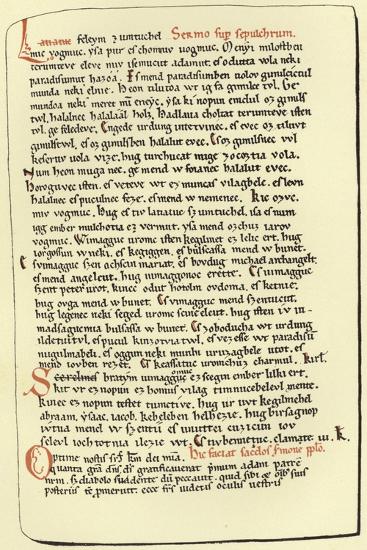 Latiatuc feleym zumtuchel Sermo sup sepulchrum.
mic vogmuc. ysa pur es chomuv uogmuc. Menyi milostben
terumteve eleve miv isemucut adamut. es odutta vola neki
paradisumut hazoa. Es mend paradisumben uolov gimilcictul
munda neki elnie. Heon tilutoa wt ig fa gimilce tvl. Ge
mundoa neki meret nu eneyc. ysa ki nopun emdul oz gimilf
twl. halalnec halalaal holz. Hadlaua choltat terumteve isten
tvl. ge feledeve. Engede urdung intetvinec. es evec oz tiluvt
gimilstwl. es oz gimilsben halalut evec. Es oz gimilsnec vvl
keseruv uola vize. hug turchucat mige zocoztia vola.
Num heon muga nec. ge mend w foianec halalut evec.
Horoguvec isten. es veteve wt ez muncas vilagbele. es levn
halalnec es puculnec feze. es mend w nemenec. Kic ozvc.
miv vogmuc. Hug es tiv latiatuv szumtuchel. isa es num
igg ember mulchotia ez vermut. ysa mend ozchuz iarov
vogmuc. Wimagguc uromc isten kegilmet ez lelic ert. hug
iorgossun w neki. es kegiggen. es bulscassa mend w bunet.
Es vimagguc szen achscin mariat. es bovdug michael archangelt.
es mend angelcut. hug uimaggonoc erette. Es uimagguc
szent peter urot. kinec odut hotolm ovdonia. es ketnie.
hug ovga mend w bunet. Es vimagguc mend szentucut.
hug legenec neki seged uromc scine eleut. hug isten iv ui
madsagucmia bulsassa w bunet. Es zoboducha wt urdung
ildetuitvl. es pucul kinzotviatwl. es vezesse wt paradisu
nugulmabeli. es oggun neki munhi uruzagbele utot. es
mend iovben rezet. Es keassatuc uromchuz charmul. Kirl.
Scerelmes bratym uimagguc ez scegin ember lilki ert.
omuc
kit vr ez nopun ez homus vilag timnucebelevl mente.
kinec ez nopun testet tumetive. hug ur uvt kegilmehel
abraam. ysaac. iacob. kebeleben helhezie. hug birsagnop
ivtua mend w szentii es unuttei cuzicun iov
felevl iochtotnia ilezie wt. Es tiv bennetuc. clamate iii. K.
Hic faciat sacdos smone pplo.